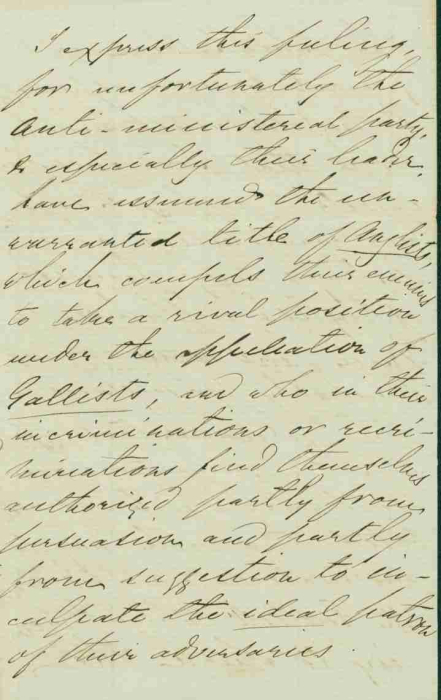 I express this feeling,
for unfortunately the
Anti-ministerial party,
& especially their leader,
have assumed the un-
warranted title of Anglists,
which compels their enemies
to take a rival position
under the appellation of
Gallists, and who in their
incriminations or recri-
minations find themselves
authorized partly from
persuasion and partly
from suggestion to in-
culpate the ideal patron
of their adversaries.